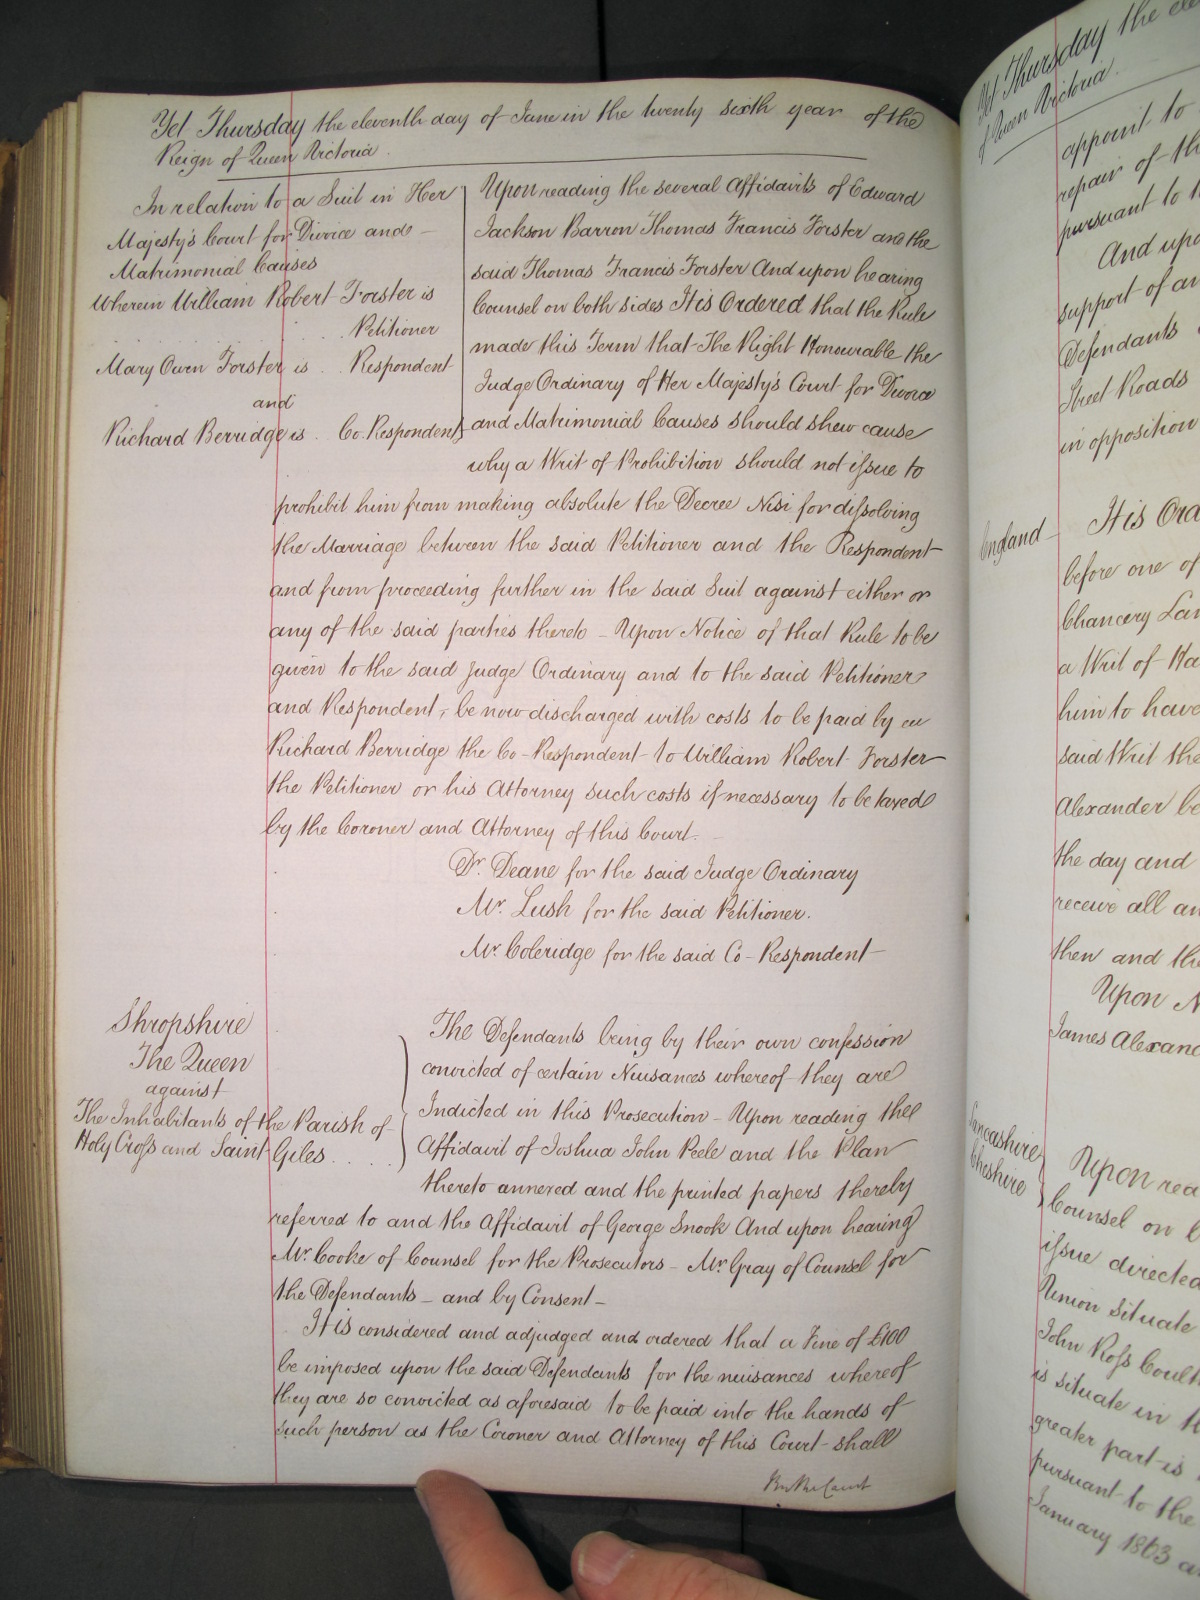 Yet Thursday the eleventh day of June in the twenty sixth year of the
Reign of Queen Victoria.
In relation to a Suit in Her
Majesty's Court for Divorce and
Matrimonial Causes
Wherein William Robert Forster is
Petitioner
Mary Owen Forster is Respondent
and
Richard Berridge is Co. Respondent
Upon reading the several Affidavits of Edward
Jackson Barron Thomas Francis Forster and the
said Thomas Francis Forster And upon hearing
Counsel on both sides It is Ordered that the Rule
made this Term that The Right Honourable the
Judge Ordinary of Her Majesty's Court for Divorce
and Matrimonial Causes should shew cause
why a Writ of Prohibition should not issue to
prohibit him from making absolute the Decree Nisi for dissolving
the Marriage between the said Petitioner and the Respondent
and from proceeding further in the said Suit against either or
any of the said parties thereto – Upon Notice of that Rule to be
given to the said Judge Ordinary and to the said Petitioner
and Respondent, be now discharged with costs to be paid by
Richard Berridge the Co-Respondent to William Robert Forster
the Petitioner or his Attorney such costs if necessary to be taxed
by the Coroner and Attorney of this Court.
Dr. Deane for the said Judge Ordinary
Mr. Lush for the said Petitioner.
Mr. Coleridge for the said Co-Respondent
Shropshire
The Queen
against
The Inhabitants of the Parish of
Holy Cross and Saint Giles
The Defendants being by their own confession
convicted of certain Nuisances whereof they are
Indicted in this Prosecution – Upon reading the
Affidavit of Joshua John Peele and the Plan
thereto annexed and the printed papers thereby
referred to and the Affidavit of George Snook And upon hearing
Mr. Cooke of Counsel for the Prosecutors – Mr. Gray of Counsel for
the Defendants – and by Consent –
It is considered and adjudged and ordered that a Fine of £100
be imposed upon the said Defendants for the nuisances whereof
they are so convicted as aforesaid to be paid into the hands of
such person as the Coroner and Attorney of this Court shall
By the Court
Yet Thursday the
of Queen Victoria.
appoint to
repair of th
pursuant to
And upo
support of an
Defendants
Street Roads
in opposition
England
It is Ord
before one of
Chancery Lan
a Writ of Ha
him to have
said Writ the
Alexander be
the day and
receive all an
then and the
Upon
James Alexand
Lancashire
Cheshire
Upon rea
Counsel on
issue directed
Union situate
John Ross Coult
is situate in
greater part is
pursuant to the
January 1863